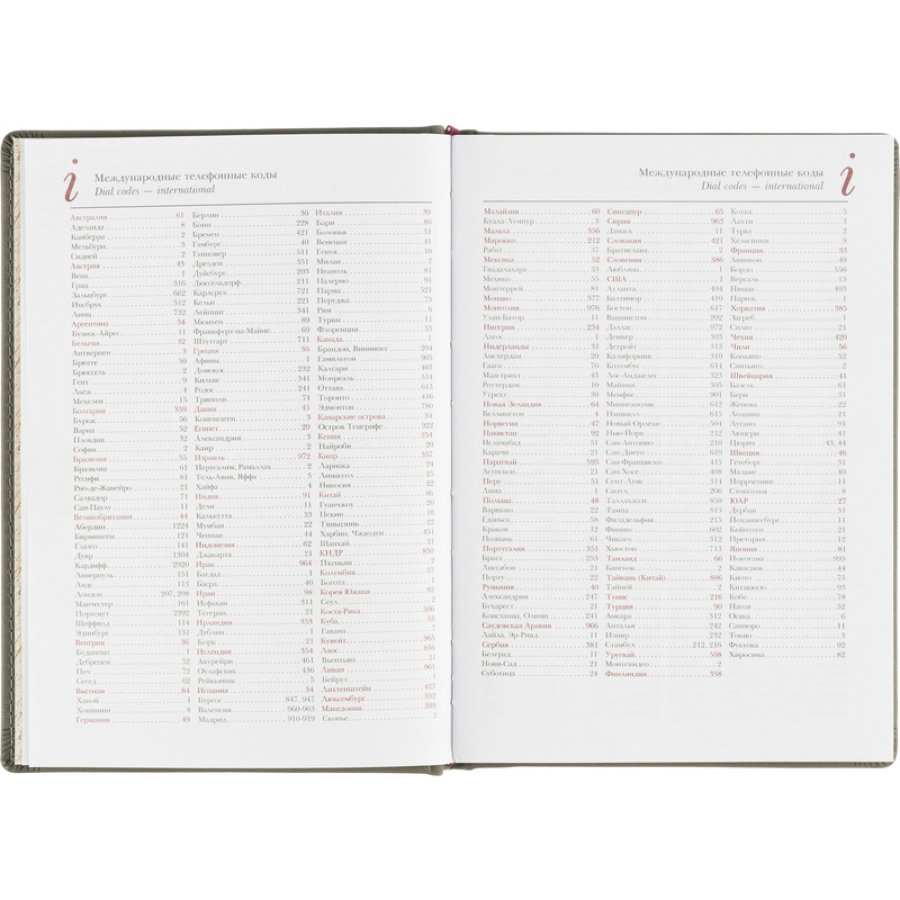 i
Международные телефонные коды
Dial codes — international
Австралия 61
Аделаида 8
Канберра 2
Мельбурн 3
Сидней 2
Австрия 43
Вена 1
Грац 316
Зальцбург 662
Инсбрук 512
Линц 732
Аргентина 54
Буэнос-Айрес 11
Бельгия 32
Антверпен 3
Брюгге 50
Брюссель 2
Гент 9
Льеж 4
Мехелен 15
Болгария 359
Бургас 56
Варна 52
Пловдив 32
София 2
Бразилия 55
Бразилиа 61
Ресифи 81
Рио-де-Жанейро 21
Сальвадор 71
Сан-Паулу 11
Великобритания 44
Абердин 1224
Бирмингем 121
Глазго 141
Дувр 1304
Кардифф 2920
Ливерпуль 151
Лидс 113
Лондон 207, 208
Манчестер 161
Портсмут 2392
Шеффилд 114
Эдинбург 131
Венгрия 36
Будапешт 1
Дебрецен 52
Печ 72
Сегед 62
Вьетнам 84
Ханой 4
Хошимин 8
Германия 49
Берлин 30
Бонн 228
Бремен 421
Гамбург 40
Ганновер 511
Дрезден 351
Дуйсбург 203
Дюссельдорф 211
Карлсруэ 721
Кельн 221
Лейпциг 341
Мюнхен 89
Франкфурт-на-Майне 69
Штутгарт 711
Греция 30
Афины 1
Домокос 232
Килкис 341
Родос 241
Триполи 71
Дания 45
Копенгаген 3
Египет 20
Александрия 3
Каир 2
Израиль 972
Иерусалим, Рамаллах 2
Тель-Авив, Яффа 3
Хайфа 4
Индия 91
Дели 11
Калькутта 33
Мумбаи 22
Ченнаи 44
Индонезия 62
Джакарта 21
Ирак 964
Багдад 1
Басра 40
Иран 98
Исфахан 311
Тегеран 21
Ирландия 353
Дублин 1
Корк 21
Исландия 354
Акурейри 461
Рейкьявик 5
Испания 34
Бургос 847, 947
Валенсия 960-963
Мадрид 910-919
Италия 39
Бари 80
Болонья 51
Венеция 41
Генуя 10
Милан 2
Неаполь 81
Палермо 91
Парма 521
Перуджа 75
Рим 6
Турин 11
Флоренция 55
Канада 1
Брандон, Виннипег 204
Гамильтон 905
Калгари 403
Монреаль 514
Оттава 613
Торонто 416
Эдмонтон 780
Канарские острова 34
Остров Тенерифе 922
Кения 254
Найроби 20
Кипр 357
Ларнака 24
Лимассол 25
Никосия 22
Китай 86
Гуанчжоу 20
Пекин 10
Тяньцзинь 22
Харбин, Чжаодун 451
Шанхай 21
КНДР 850
Пхеньян 2
Колумбия 57
Богота 1
Корея Южная 82
Сеул 2
Коста-Рика 506
Куба 53
Гавана 7
Кувейт 965
Лаос 856
Вьентьян 21
Ливан 961
Бейрут 1
Лихтенштейн 423
Люксембург 352
Македония 389
Скопье 2
i
Международные телефонные коды
Dial codes — international
Малайзия 60
Куала-Лумпур 3
Мальта 356
Марокко 212
Рабат 37
Мексика 52
Гвадалахара 33
Мехико 55
Монтеррей 81
Монако 377
Монголия 976
Улан-Батор 11
Нигерия 234
Лагос 1
Нидерланды 31
Амстердам 20
Гаага 70
Маастрихт 43
Роттердам 10
Утрехт 30
Новая Зеландия 64
Веллингтон 4
Норвегия 47
Пакистан 92
Исламабад 51
Карачи 21
Парагвай 595
Асунсьон 21
Перу 51
Лима 1
Польша 48
Варшава 22
Гданьск 58
Краков 12
Познань 61
Португалия 351
Лиссабон 21
Порту 22
Румыния 40
Александрия 247
Бухарест 21
Констанца, Олимп 241
Саудовская Аравия 966
Лайла, Эр-Рияд 11
Сербия 381
Белград 11
Нови-Сад 21
Суботица 24
Сингапур 65
Сирия 963
Дамаск 11
Словакия 421
Братислава 2
Словения 386
Любляна 1
США 1
Атланта 404
Балтимор 410
Бостон 617
Вашингтон 202
Даллас 972
Детройт 313
Калифорния 310
Колумбус 614
Лос-Анджелес 323
Майами 305
Мемфис 901
Миннеаполис 612
Нашвилл 615
Новый Орлеан 504
Нью-Йорк 212
Сан-Антонио 210
Сан-Диего 619
Сан-Франциско 415
Сан-Хосе 408
Сент-Луис 314
Сиэтл 206
Таллахасси 850
Тампа 813
Филадельфия 215
Финикс 602
Чикаго 312
Хьюстон 713
Таиланд 66
Бангкок 2
Тайвань (Китай) 886
Тайпей 2
Тунис 216
Турция 90
Анкара 312
Анталия 242
Измир 232
Стамбул 212, 216
Уругвай 598
Монтевидео 2
Финляндия 358
Котка 5
Лахти 3
Турку 2
Хельсинки 9
Франция 33
Авиньон 49
Бордо 556
Версаль 13
Ницца 493
Париж 1
Хорватия 385
Загреб 1
Сплит 21
Чехия 420
Чили 56
Копьяпо 52
Сантьяго 2
Швейцария 41
Базель 61
Берн 31
Женева 22
Лозанна 21
Лугано 91
Люцерн 41
Цюрих 43, 44
Швеция 46
Гетеборг 31
Мальме 40
Норрчепинг 11
Стокгольм 8
ЮАР 27
Дурбан 31
Йоханнесбург 11
Кейптаун 21
Претория 12
Япония 81
Иокогама 995
Кавасаки 44
Киото 75
Китакюсю 93
Кобе 78
Нагоя 52
Осака 6
Саппоро 11
Токио 3
Фукуока 92
Хиросима 82